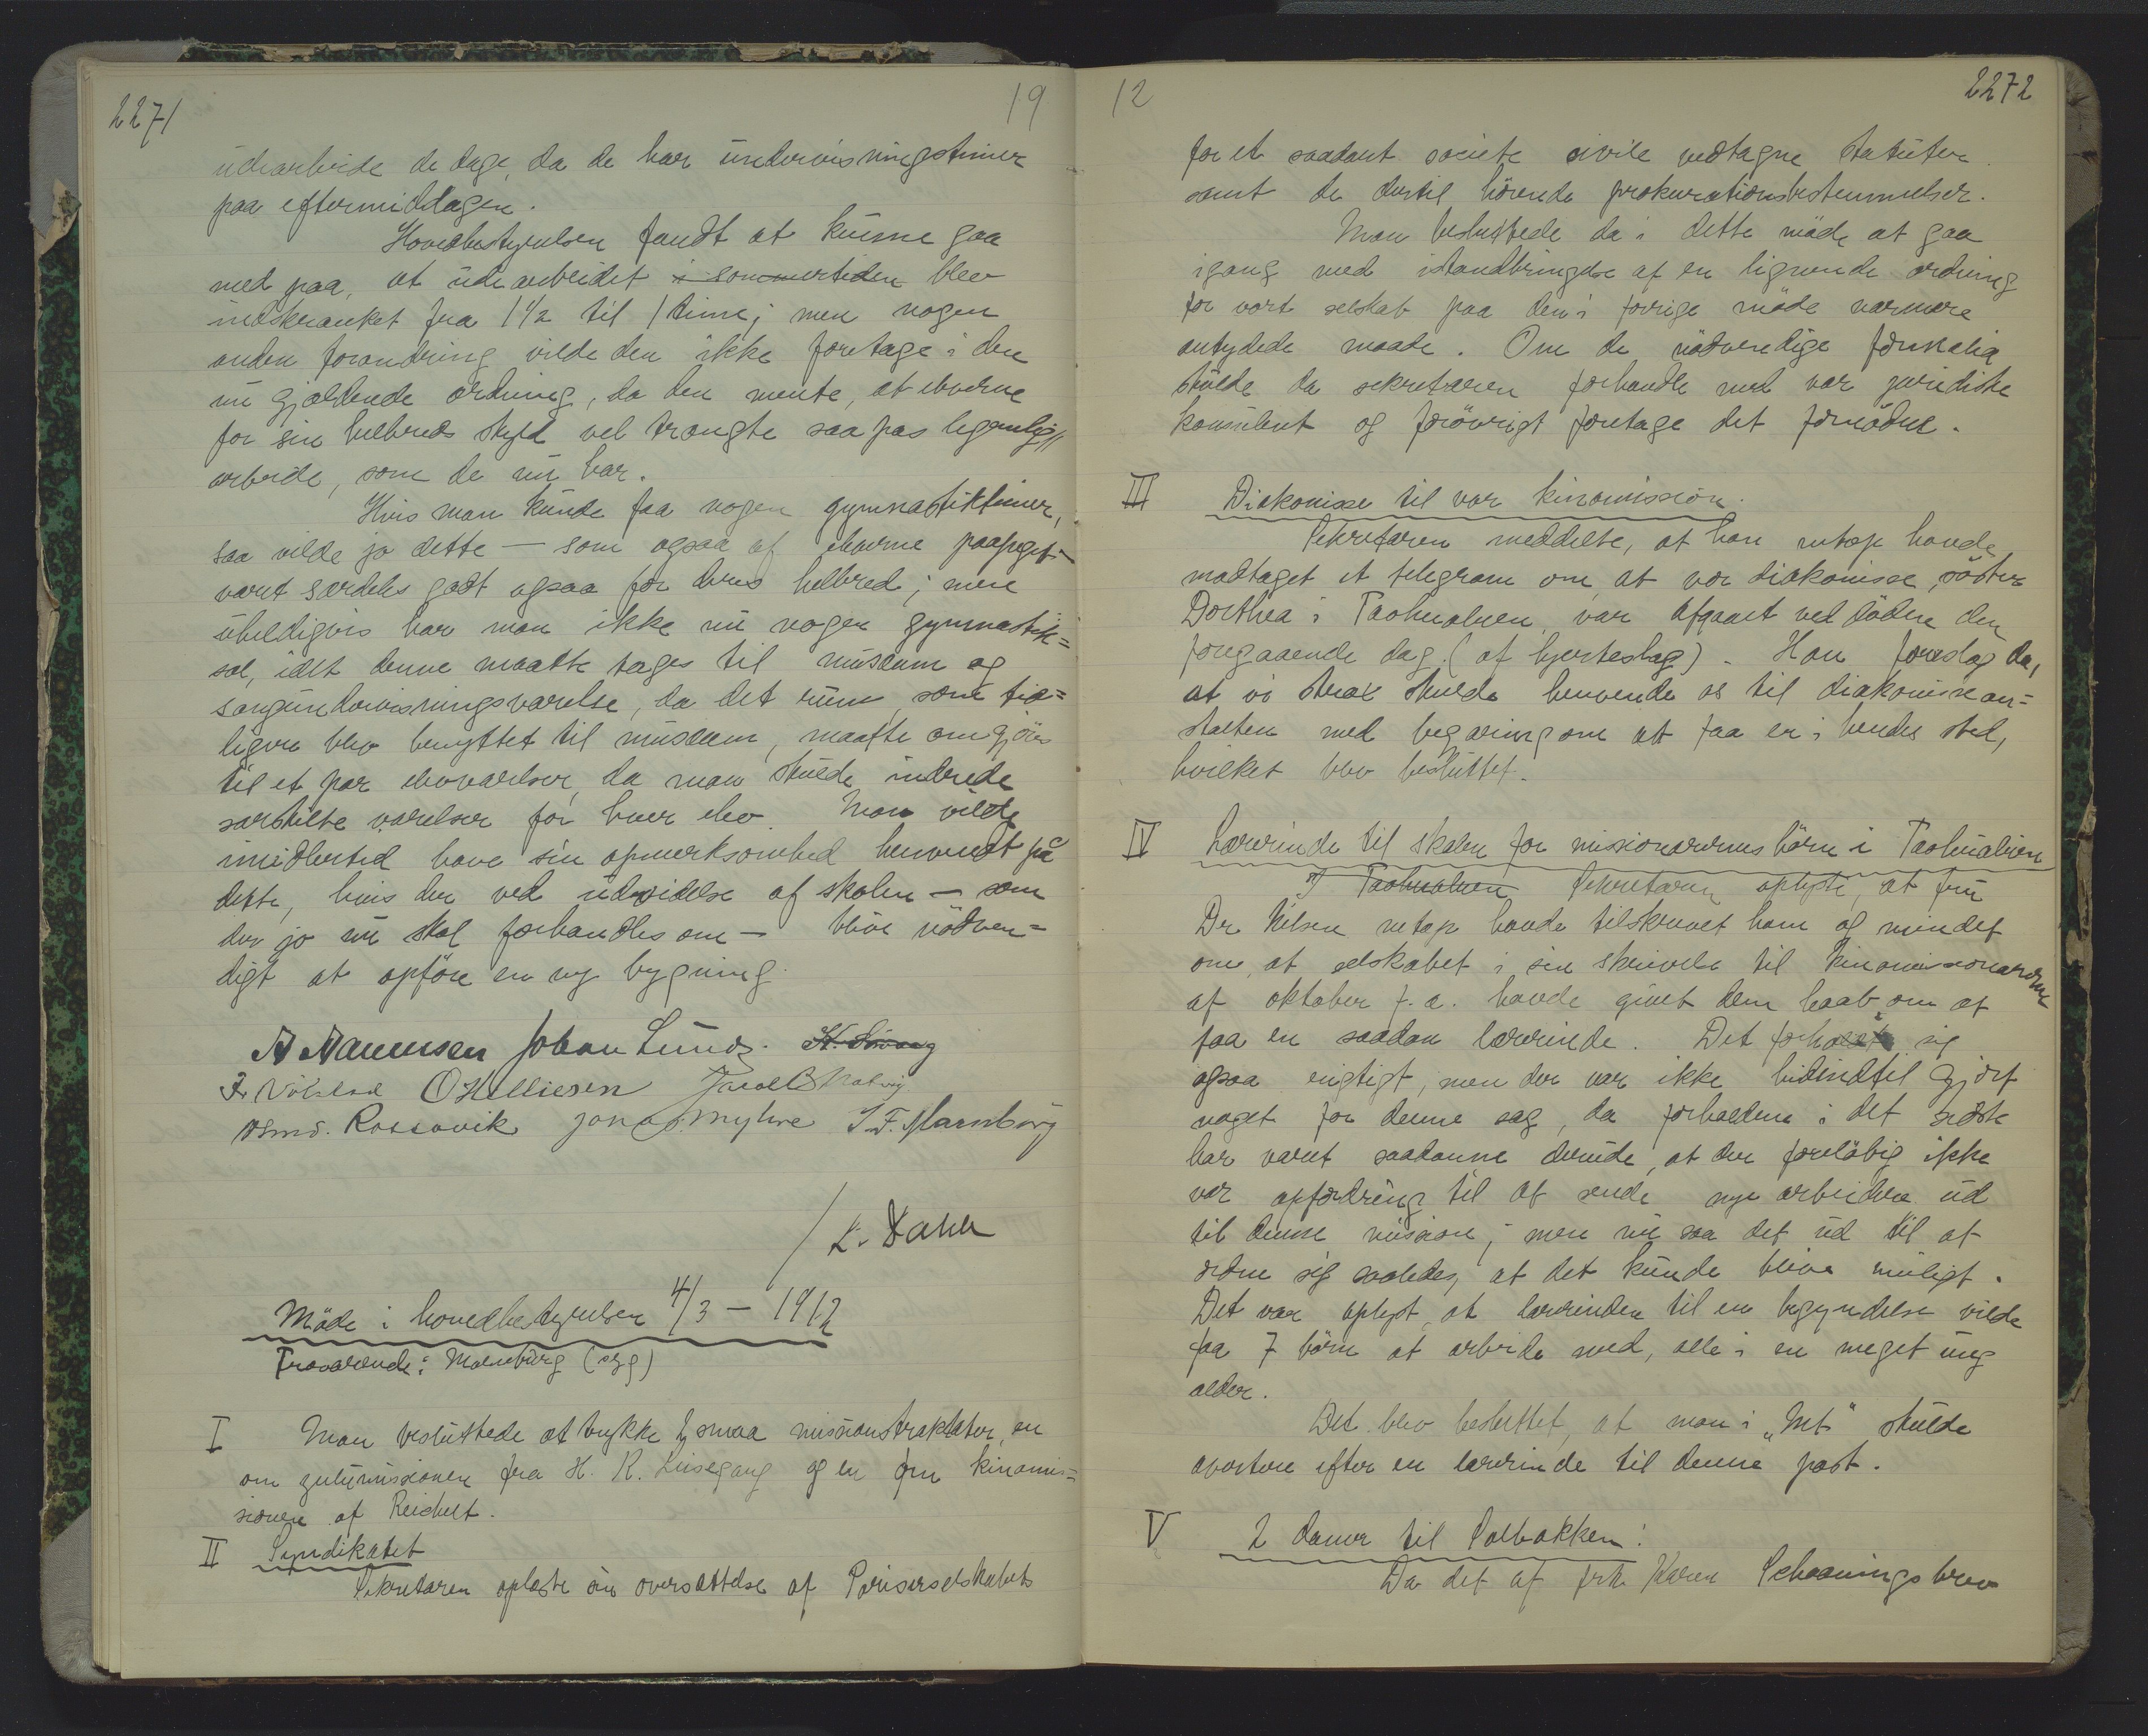 2271
19
udearbeide de dage, da de har undervisningstimer
paa eftermiddagen.
Hovedbestyrelsen fandt at kunne gaa
med paa, at udearbeidet i sommertiden blev
indskrænket fra 1 1/2 til 1 time; men nogen
anden forandring vilde den ikke foretage i den
nu gjældende ordning, da den mente, at eleverne
for sin helbreds skyld vel trængte saapas legemlig
arbeide, som de nu har.
Hvis man kunde faa nogen gymnastiktimer,
saa vilde jo dette — som ogsaa af eleverne paapeget —
været særdeles godt ogsaa for deres helbred; men
uheldigvis har man ikke nu nogen gymnastik=
sal, idet denne maatte tages til museum og
sangundervisningsværelse, da det rum, som tid=
ligere blev benyttet til museum, maatte omgjøres
til et par elevværelser, da man skulde indrede
særskilte værelser for hver elev. Man vilde
imidlertid have sin opmerksomhed henvendt på
dette, hvis der ved udvidelse af skolen — som
der jo nu skal forhandles om — blive nödven=
digt at opføre en ny bygning.
Johan Lunde.
O Helliesen
Osmd. Rossavik Jon S. Myhre J. F. Marnburg
/ L. Dahle
Möde i hovedbestyrelsen 4/3 – 1912
Fraværende: Marnburg (syg)
I Man besluttede at trykke 2 smaa missionstraktater, en
om zulumissionen fra H. K. Leisegang og en om kinamis=
sionen af Reichelt.
II Syndikatet
Sekretæren oplæste en oversættelse af Pariserselskabets
12
2272
for et saadant societe civile vedtagne statuter
samt de dertil hørende prokurationsbestemmelser.
Man besluttede da i dette möde at gaa
igang med istandbringelse af en lignende ordning
for vort selskab paa den i forrige möde nærmere
antydede maade. Om de nödvendige formalia
skulde da sekretæren forhandle med vor juridiske
konsulent og forövrigt foretage det fornödne.
III Diakonisse til vor kinamission.
Sekretæren meddelte, at han netop havde
modtaget et telegram om, at vor diakonisse, söster
Dorthea i Taohualuen, var afgaaet ved döden den
foregaaende dag. (af hjerteslag). Han foreslog da,
at vi strax skulde henvende os til diakonissean=
stalten med begjæring om at faa en i hendes sted,
hvilket blev besluttet.
IV Lærerinde til skolen for missionærernes börn i Taohualuen
I Taohualuen Sekretæren oplyste, at fru
Dr Nilsen netop havde tilskrevet ham og mindet
om, at selskabet i sin skrivelse til kinamissionærerne
af oktober f. a. havde givet dem haab om at
faa en saadan lærerinde. Det forholdt sig
ogsaa rigtigt, men der var ikke hidindtil gjort
noget for denne sag, da forholdene i det sidste
har været saadanne derude, at der foreløbig ikke
var opfordring til at sende nye arbeidere ud
til denne mission; men nu saa det ud til at
ordne sig saaledes, at det kunde blive muligt.
Det var oplyst, at lærerinden til en begyndelse vilde
faa 7 börn at arbeide med, alle i en meget ung
alder.
Det blev besluttet, at man i „Mt" skulde
avertere efter en lærerinde til denne post.
V 2 damer til Solbakken:
Da det af frk. Karen Schoenings brev